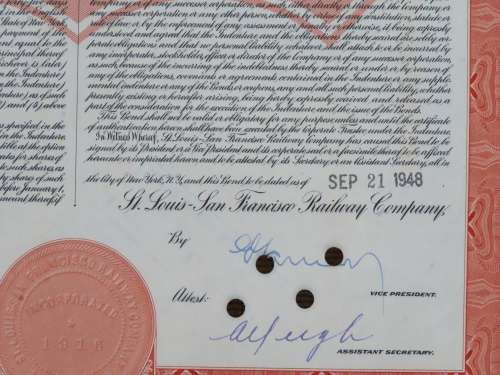 company of any successor corporation, as such, either directly or through the Company or
any successor corporation or any other person, whether by virtue of any constitution, statute or
rule of law, or by the enforcement of any assessment or penalty or otherwise, it being expressly
understood and agreed that the Indenture and the obligations thereby secured are solely corporate
obligations and that no personal liability whatever shall attach to or be incurred by
any incorporator, stockholder, officer or director of the Company or of any successor corporation,
as such, because of the incurring of the indebtedness thereby created or under or by reason of
any of the obligations, covenants or agreements contained in the Indenture or any supplemental
indenture or any of the Bonds or coupons, any and all such personal liability, whether
presently existing or hereafter arising, being hereby expressly waived and released as a
part of the consideration for the execution of the Indenture and the issue of the Bonds.
This Bond shall not be valid or obligatory for any purpose unless and until the certificate
of authentication hereon shall have been executed by the Corporate Trustee under the Indenture.
In Witness Whereof, St. Louis-San Francisco Railway Company has caused this Bond to be
signed by its President or a Vice President and its corporate seal or a facsimile thereof to be affixed
hereto or imprinted hereon and to be attested by its Secretary or an Assistant Secretary, all in
the City of New York, N.Y., and this Bond to be dated as of SEP 21 1948
St. Louis-San Francisco Railway Company,
By
VICE PRESIDENT.
Attest:
ASSISTANT SECRETARY.
State of New York
payment of the
Indenture)
specified in the
at the option
rates for shares of
such shares as
by such shares
before January 1,
amount thereof
SAN FRANCISCO RAILWAY COMPANY
INCORPORATED
1916